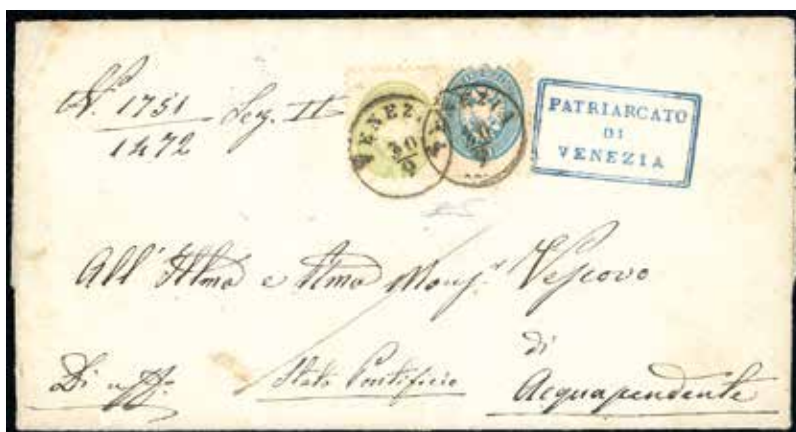 N. 1751 Sez. II
1472
VENEZIA
30/9
VENEZIA
30/9
PATRIARCATO
DI
VENEZIA
All' Illmo e Rmo Monsr. Vescovo
di
Di uffo. Stato Pontificio Acquapendente